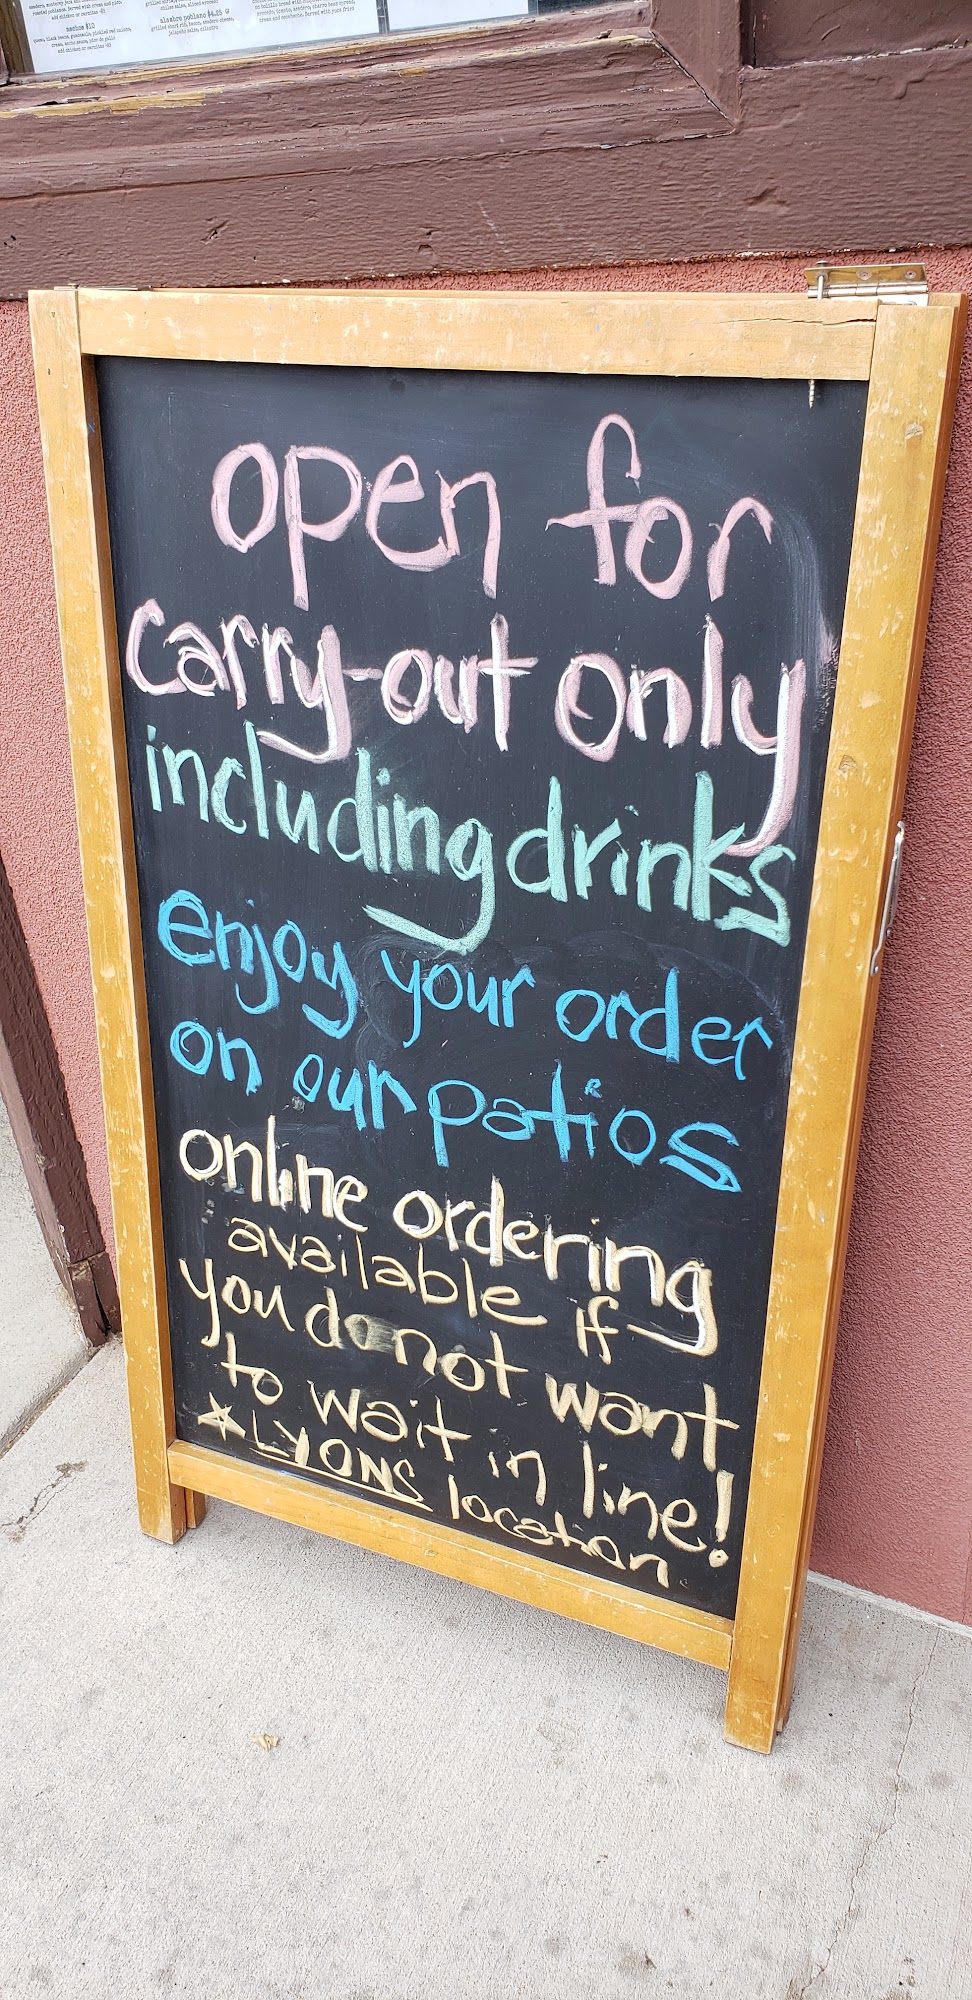 nachos $10
add chicken or carnitas +$3
alambre poblano $4.25
jalapeño salsa, cilantro
open for
carry-out only
including drinks
enjoy your order
on our patios
online ordering
available if
you do not want
to wait in line!
LYONS location